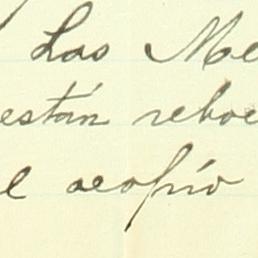 Las Me
están reboc
l acopio